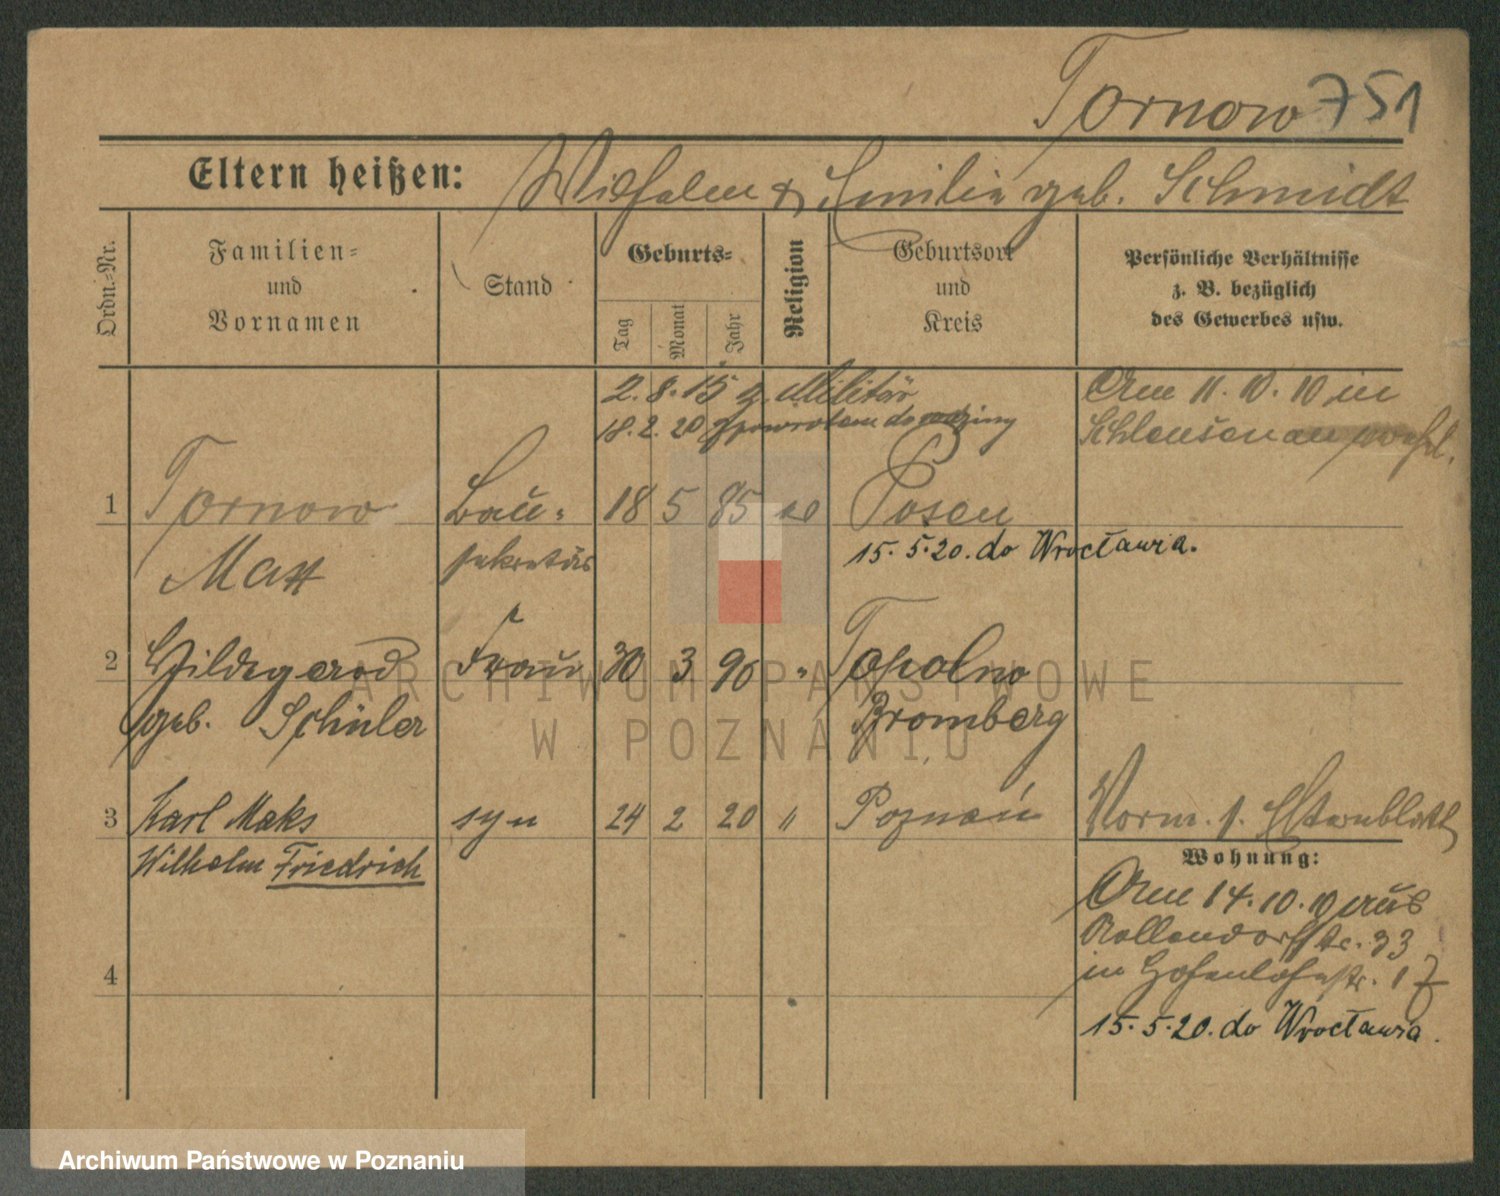 Tornow 751
Eltern heißen: Wilhelm & Emilie geb. Schmidt
Ordn.-Nr.
Familien- und Vornamen
Stand
Geburts-
Tag
Monat
Jahr
Religion
Geburtsort und Kreis
Persönliche Verhältnisse z. B. bezüglich des Gewerbes usw.
2.8.15 z. Militär
18.2.20 z powrotem do rodziny
Am 11.10.10 in
Schleusenau
1 Tornow Bau- 18 5 85 Posen
Max sekretär 15.5.20. do Wrocławia.
2 Hildegard Frau 30 3 90 " Topolno
geb. Schüler Bromberg
3 Karl Maks syn 24 2 20 " Poznań Vorm. s. Elternblatt
Wilhelm Friedrich
Wohnung:
Am 14.10.10 aus
Nollendorfstr. 33
in Hohenlohestr. 1
4
15.5.20. do Wrocławia.
ARCHIWUM PAŃSTWOWE
W POZNANIU
Archiwum Państwowe w Poznaniu